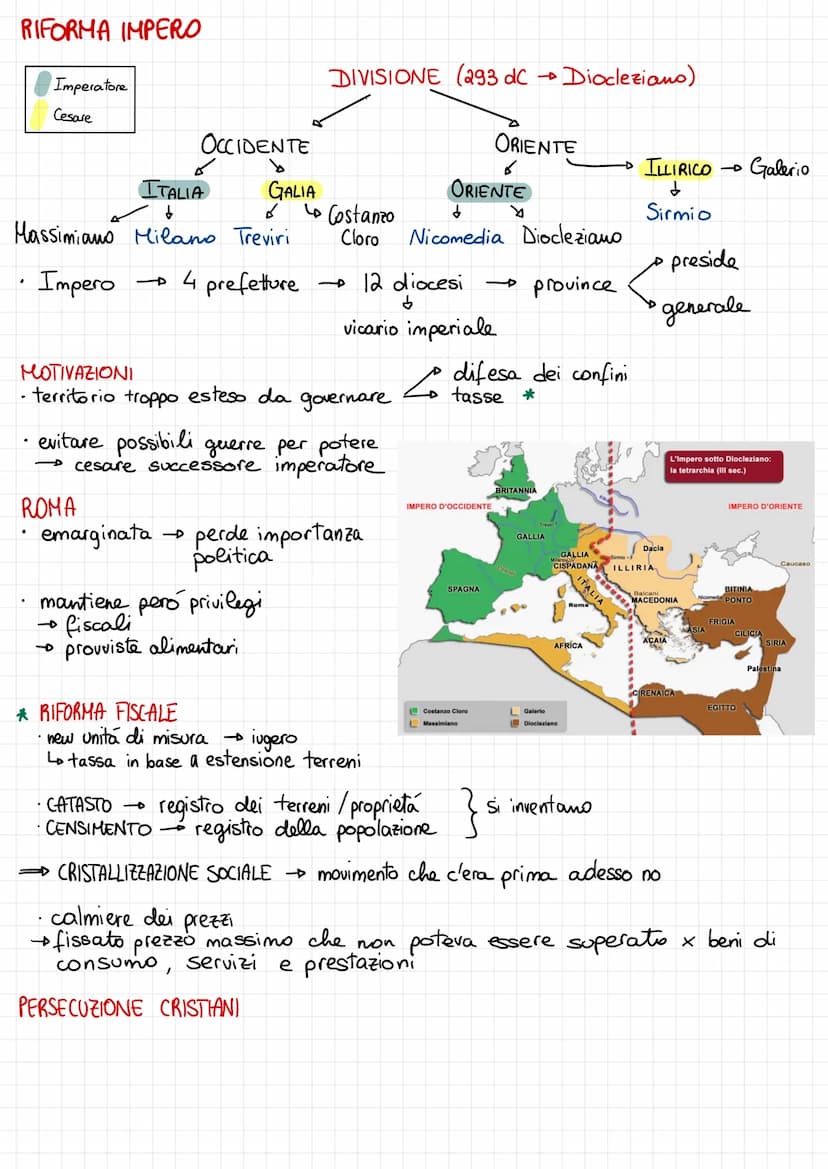 RIFORMA IMPERO
Imperatore
Cesare
DIVISIONE (293 dC → Diocleziano)
OCCIDENTE
ORIENTE
ITALIA
GALIA
ORIENTE
ILLIRICO → Galerio
Massimiano
Milano
Treviri
Costanzo
Cloro
Nicomedia
Diocleziano
Sirmio
· Impero → 4 prefetture → 12 diocesi → province
preside
generale
vicario imperiale
MOTIVAZIONI
· territorio troppo esteso da governare
difesa dei confini
tasse *
· evitare possibili guerre per potere
→ cesare successore imperatore
ROMA
· emarginata → perde importanza
politica
· mantiene però privilegi
→ fiscali
→ provviste alimentari
L'Impero sotto Diocleziano:
la tetrarchia (III sec.)
IMPERO D'OCCIDENTE
IMPERO D'ORIENTE
BRITANNIA
GALLIA
Treviri
GALLIA
CISPADANA
Milano
Sirmio
Dacia
ILLIRIA
Caucaso
SPAGNA
ITALIA
Roma
Balcani
MACEDONIA
Nicomedia
BITINIA
PONTO
FRIGIA
ASIA
CILICIA
ACAIA
SIRIA
AFRICA
Palestina
CIRENAICA
EGITTO
Costanzo Cloro
Galerio
Massimiano
Diocleziano
* RIFORMA FISCALE
· new unitá di misura → iugero
↳ tassa in base a estensione terreni
· CATASTO → registro dei terreni / proprietá
· CENSIMENTO → registro della popolazione
} si inventano
⇒ CRISTALLIZZAZIONE SOCIALE → movimento che c'era prima adesso no
· calmiere dei prezzi
→ fissato prezzo massimo che non poteva essere superato x beni di
consumo, servizi e prestazioni
PERSECUZIONE CRISTIANI